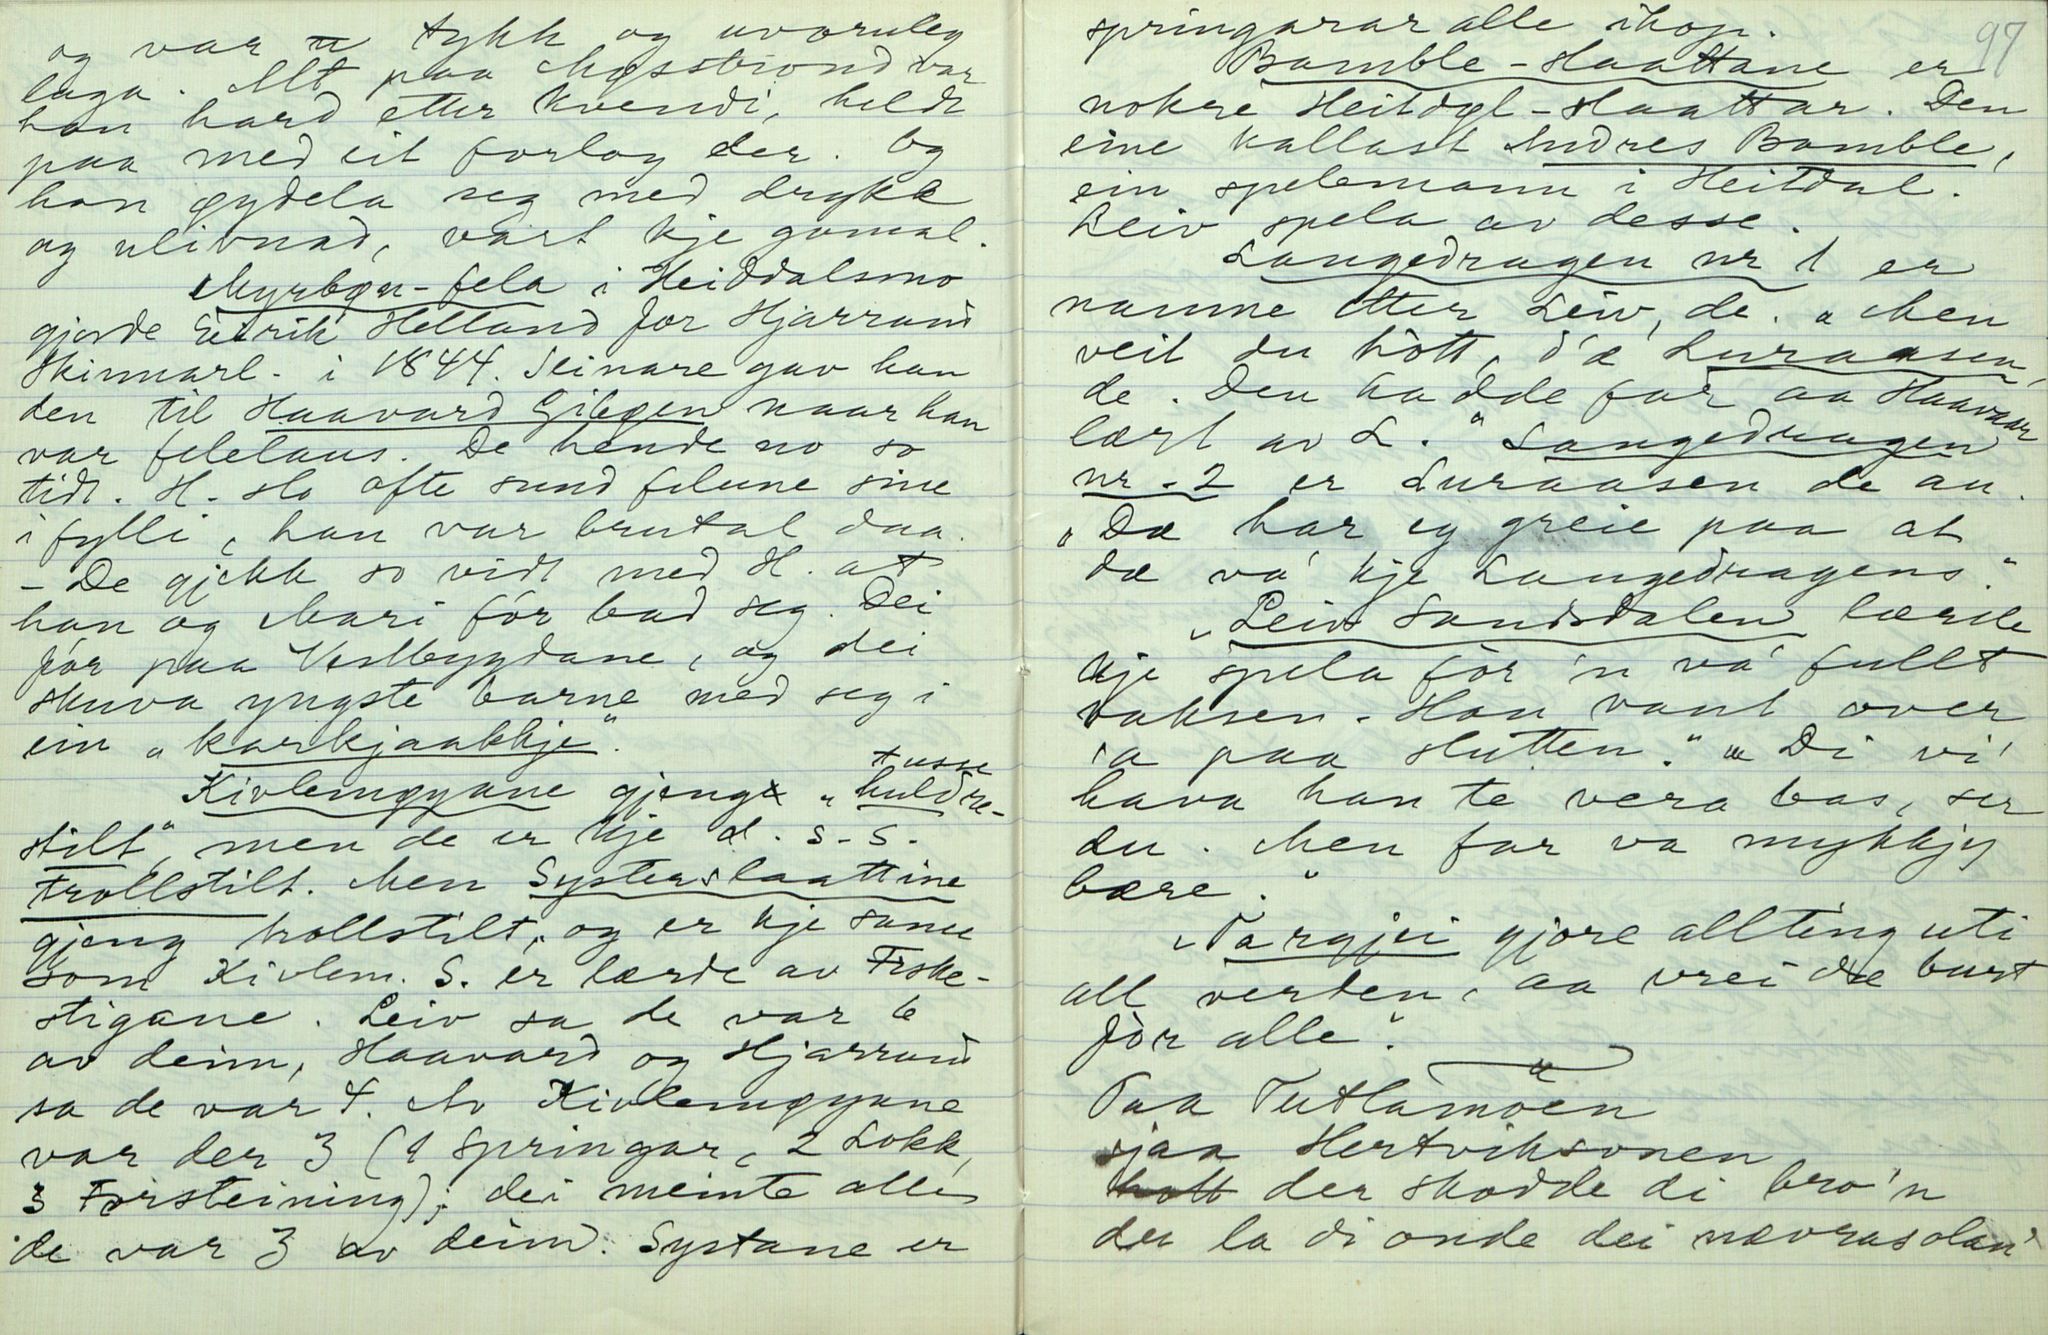 og var u tykk og uvoruleg
laga. Alt paa Møsstrond var
han hard etter kvendi, heldt
paa med eit forlog der. Og
han øydela seg med drykk
og ulivnad, vart kje gamal.
Myrbøn-fela i Heiddalsmo
gjorde Eirik Helland for Hjarrand
Skinnarl. i 1844. Seinare gav han
den til Haavard Gibøen naar han
var felelaus. De hende no so
tidt. H. slo ofte sund felune sine
i fylli, han var brutal daa.
- De gjekk so vidt med H. at
han og Mari fór bad seg. Dei
fór paa Vestbygdane, og dei
skuva yngste barne med seg i
ein "karkjaakkje".
Kivlemøyane gjeng "huldre-
tusse
stilt", men de er kje d. s. s.
trollstilt. Men Systerslaattine
gjeng trollstilt, og er kje same
som Kivlem. S. er lærde av Fiske-
stigane. Leiv sa de var 6
av deim, Haavard og Hjarrand
sa de var 4. Av Kivlemøyane
var der 3 (1 Springar, 2 Lokk,
3 Forsteining); dei meinte alle
de var 3 av deim. Systane er
97
springarar alle ihop.
Bamble-Haattane er
nokre Heitdøl-Haattar. Den
eine kallast Andres Bamble,
ein spelemann i Heitdal.
Leiv spela av desse.
Langedragen nr 1 er
namne etter Leiv, de. "Men
veit du hòtt, d'æ Luraasen,
de. Den hadde far aa Haavaar
lært av L." Langedragen
nr. 2 er Luraasen de au.
"Dæ har eg greie paa at
dæ va' kje Langedragens."
"Leiv Sandsdalen lærde
kje spela fòr 'n va' fullt
vaksen. Han vant over
'a paa slutten." "Di vi'
hava han te vera bas, ser
du. Men far va mykkjy
bære."
"Targjei gjore allting uti
all verden, aa vrei dæ burt
fòr alle".
Paa Tutlamoen
sjaa Hertviksonen
hott der skodde di bro'n
der la di onde dei nævrasolan'